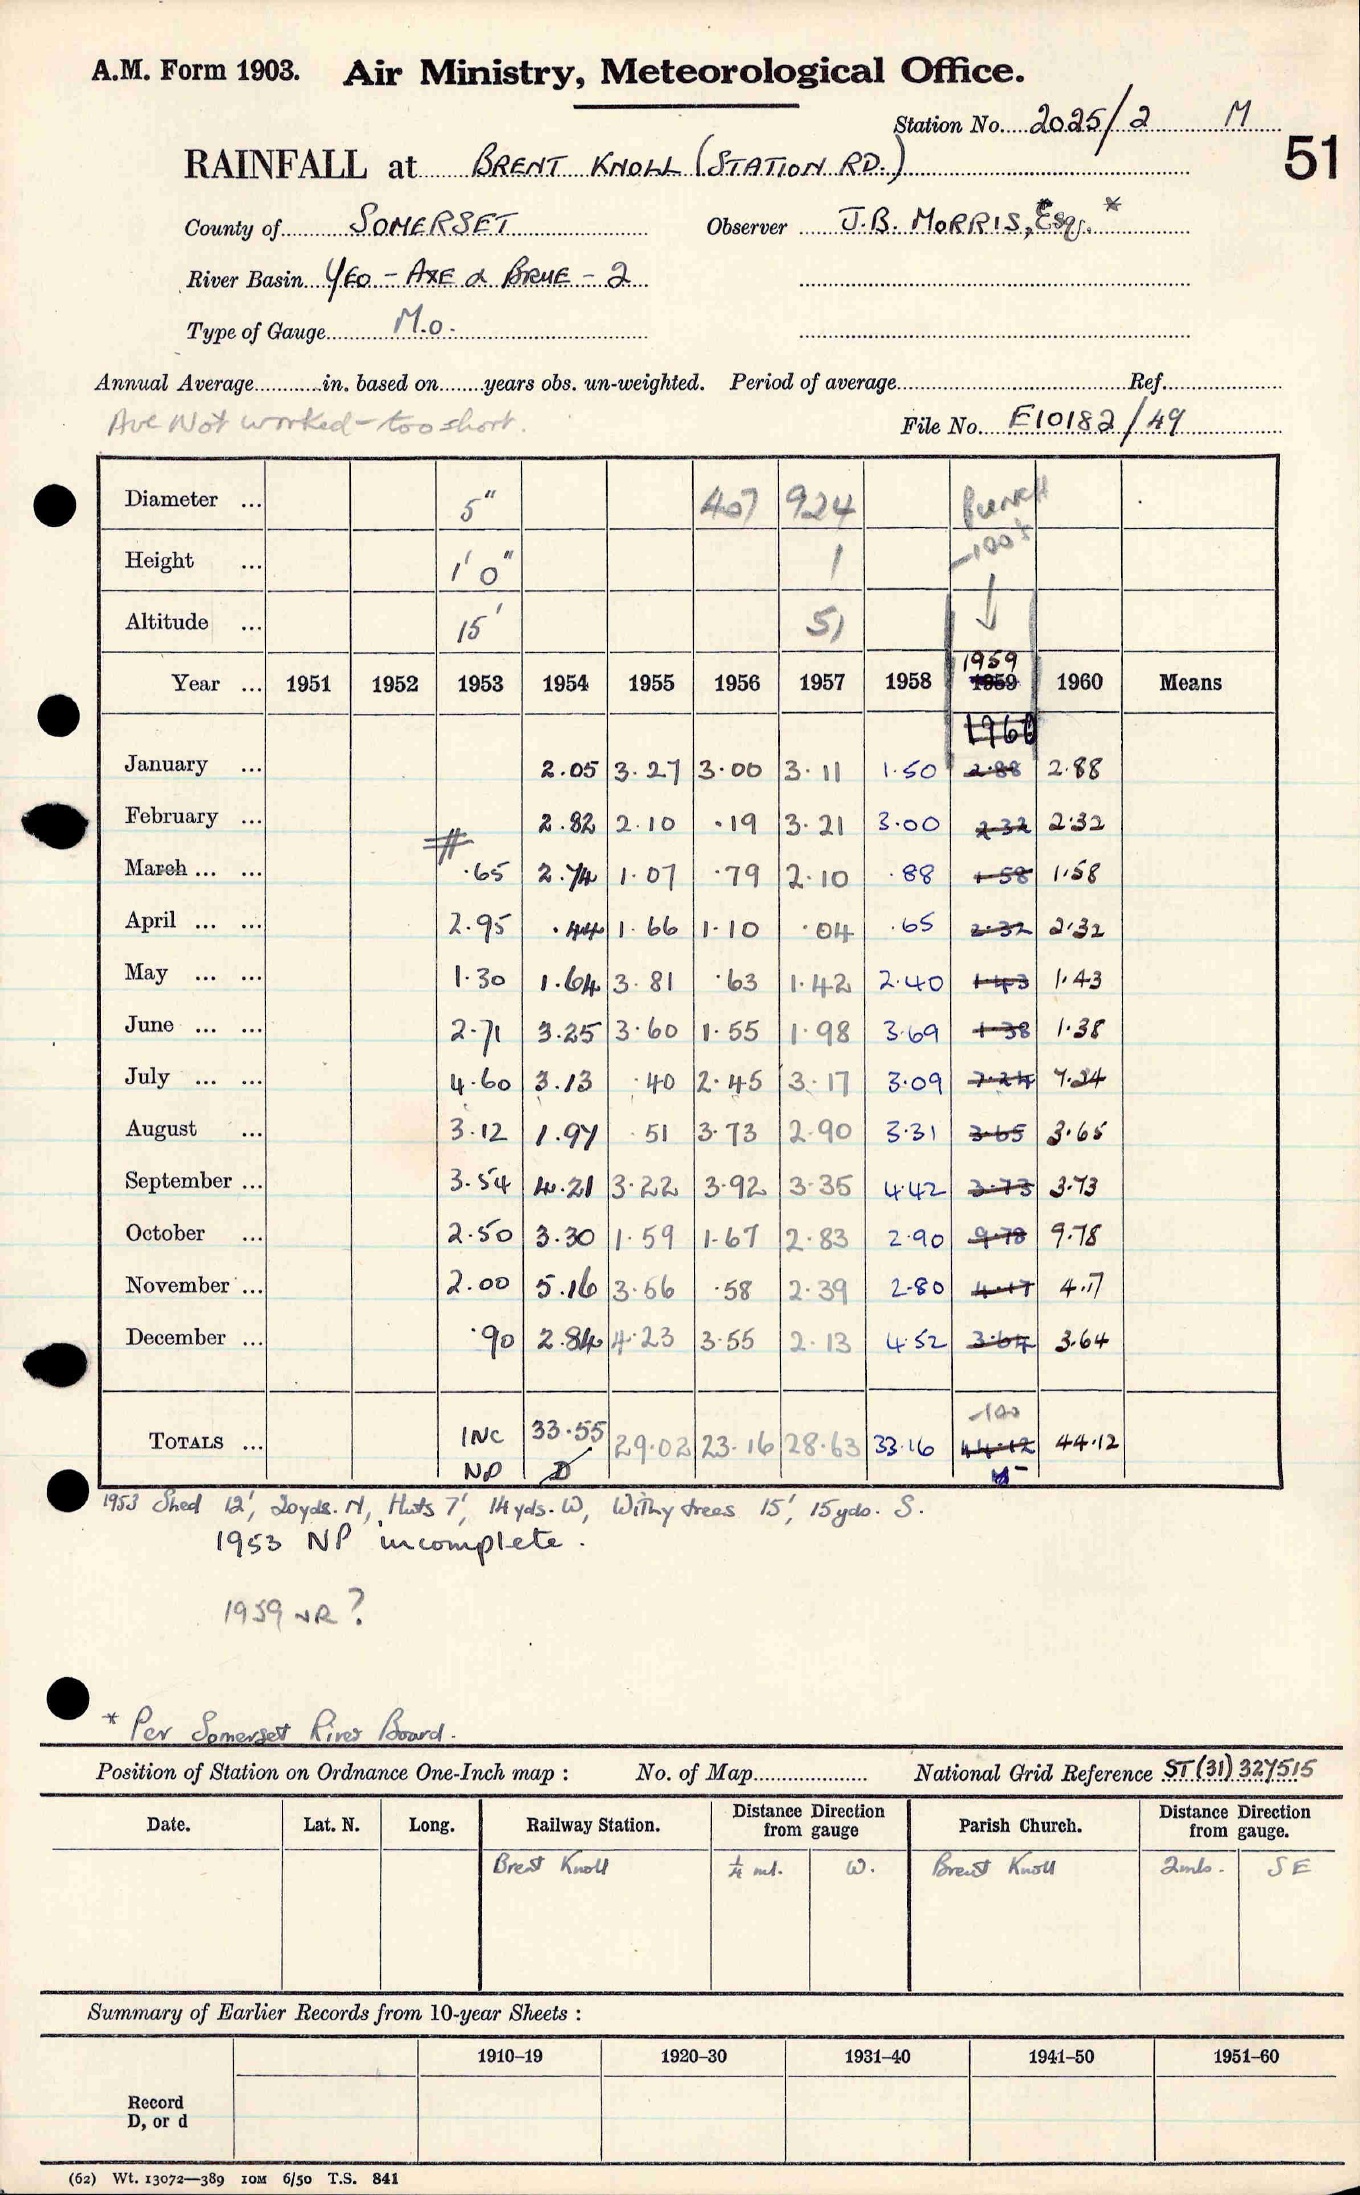 A.M. Form 1903. Air Ministry, Meteorological Office.
Station No. 2025/2 M
51
RAINFALL at BRENT KNOLL (STATION RD.)
County of SOMERSET Observer J.B. MORRIS, Esq. *
River Basin YEO - AXE & BRUE - 2
Type of Gauge M.O.
Annual Average in. based on years obs. un-weighted. Period of average Ref.
Ave Not worked - too short.
File No. E10182/49
Diameter ... 5" 407 924
Height ... 1' 0" 1 -100%
Altitude ... 15' 51
1959
Year ... 1951 1952 1953 1954 1955 1956 1957 1958 1959 1960 Means
1960
January ... 2.05 3.27 3.00 3.11 1.50 2.88 2.88
February ... 2.82 2.10 .19 3.21 3.00 2.32 2.32
March ... ... .65 2.74 1.07 .79 2.10 .88 1.58 1.58
April ... ... 2.95 .44 1.66 1.10 .04 .65 2.32 2.32
May ... ... 1.30 1.64 3.81 .63 1.42 2.40 1.43 1.43
June ... ... 2.71 3.25 3.60 1.55 1.98 3.69 1.38 1.38
July ... ... 4.60 3.13 .40 2.45 3.17 3.09 7.24 7.24
August ... 3.12 1.97 .51 3.73 2.90 3.31 3.65 3.65
September ... 3.54 4.21 3.22 3.92 3.35 4.42 3.73 3.73
October ... 2.50 3.30 1.59 1.67 2.83 2.90 9.78 9.78
November ... 2.00 5.16 3.56 .58 2.39 2.80 4.17 4.17
December ... .90 2.84 4.23 3.55 2.13 4.52 3.64 3.64
-100
TOTALS ... INC 33.55 29.02 23.16 28.63 33.16 44.12 44.12
NP D
1953 Shed 12', 20yds. N, Huts 7', 14yds. W, Withy trees 15', 15yds. S.
1953 NP incomplete.
1959 NR?
* Per Somerset River Board.
Position of Station on Ordnance One-Inch map : No. of Map National Grid Reference ST (31) 327515
Date. Lat. N. Long. Railway Station. Distance Direction from gauge Parish Church. Distance Direction from gauge.
Brent Knoll ¼ ml. W. Brent Knoll 2mls. SE
Summary of Earlier Records from 10-year Sheets :
1910–19 1920–30 1931–40 1941–50 1951–60
Record
D, or d
(62) Wt. 13072—389 10M 6/50 T.S. 841